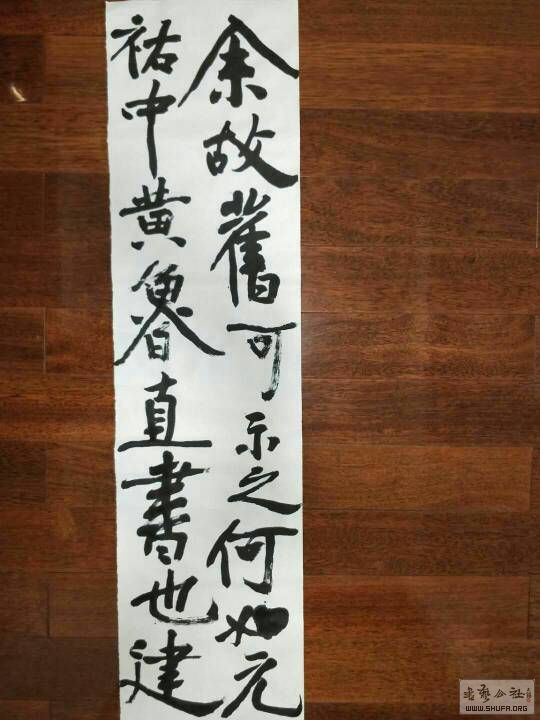 余故舊可示之何如元
祐中黄魯直書也建
WWW.SHUFA.ORG